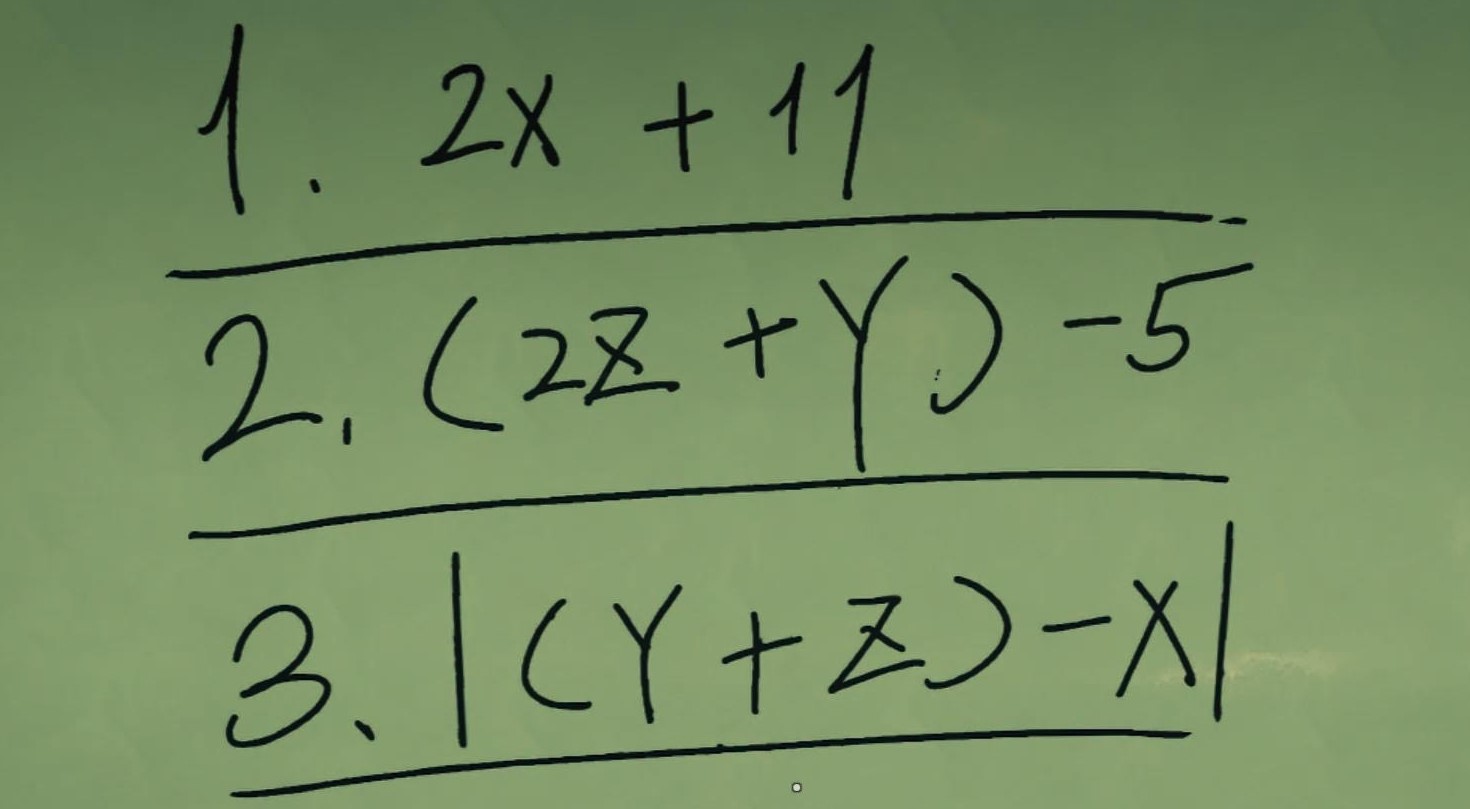 1. 2X + 11
2. (2Z + Y) - 5
3. |(Y + Z) - X|